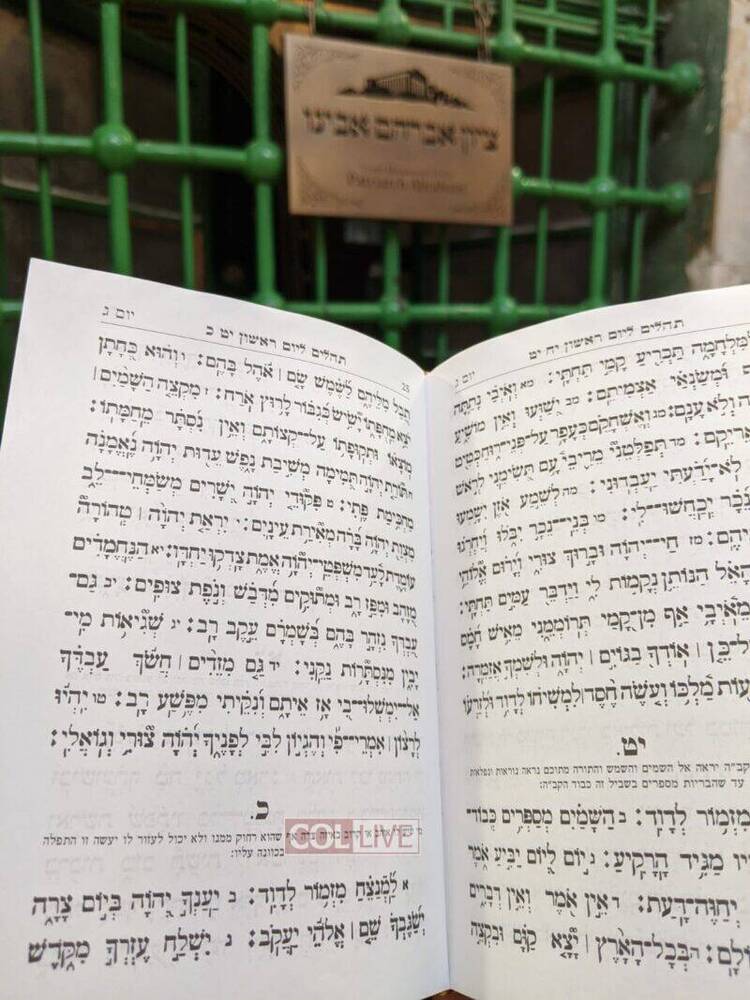 ציון אברהם אבינו
Patriarch Abraham
תהלים ליום ראשון יח יט
יום ג
לַמִּלְחָמָה תַּכְרִיעַ קָמַי תַּחְתָּי: מא וְאֹיְבַי נָתַתָּה
וּמְשַׂנְאַי אַצְמִיתֵם: מב יְשַׁוְּעוּ וְאֵין מוֹשִׁיעַ
וְלֹא עָנָם: מג וְאֶשְׁחָקֵם כְּעָפָר עַל־פְּנֵי־רוּחַ כְּטִיט
אֲרִיקֵם: מד תְּפַלְּטֵנִי מֵרִיבֵי עָם תְּשִׂימֵנִי לְרֹאשׁ
לֹא־יָדַעְתִּי יַעַבְדוּנִי: מה לְשֵׁמַע אֹזֶן יִשָּׁמְעוּ
נֵכָר יְכַחֲשׁוּ־לִי: מו בְּנֵי־נֵכָר יִבֹּלוּ וְיַחְרְגוּ
מז חַי־יְהוָה וּבָרוּךְ צוּרִי וְיָרוּם אֱלוֹהֵי
הָאֵל הַנּוֹתֵן נְקָמוֹת לִי וַיַּדְבֵּר עַמִּים תַּחְתָּי:
מֵאֹיְבָי אַף מִן־קָמַי תְּרוֹמְמֵנִי מֵאִישׁ חָמָס
כֵּן | אוֹדְךָ בַגּוֹיִם | יְהוָה וּלְשִׁמְךָ אֲזַמֵּרָה:
מַלְכּוֹ וְעֹשֶׂה חֶסֶד | לִמְשִׁיחוֹ לְדָוִד וּלְזַרְעוֹ
יט.
הקב״ה יראה אל השמים והשמש והתורה מתוכם נראה נוראות ונפלאות
עד שהבריות מספרים בשביל זה כבוד הקב״ה:
מִזְמוֹר לְדָוִד: ב הַשָּׁמַיִם מְסַפְּרִים כְּבוֹד־
מַגִּיד הָרָקִיעַ: ג יוֹם לְיוֹם יַבִּיעַ אֹמֶר
יְחַוֶּה־דָּעַת: ד אֵין אֹמֶר וְאֵין דְּבָרִים
ה בְּכָל־הָאָרֶץ | יָצָא קַוָּם וּבִקְצֵה
יום ג
תהלים ליום ראשון יט כ
28
תֵבֵל מִלֵּיהֶם לַשֶּׁמֶשׁ שָׂם | אֹהֶל בָּהֶם: ו וְהוּא כְּחָתָן
יֹצֵא מֵחֻפָּתוֹ יָשִׂישׂ כְּגִבּוֹר לָרוּץ אֹרַח: ז מִקְצֵה הַשָּׁמַיִם |
מוֹצָאוֹ וּתְקוּפָתוֹ עַל־קְצוֹתָם וְאֵין נִסְתָּר מֵחַמָּתוֹ:
ח תּוֹרַת יְהוָה תְּמִימָה מְשִׁיבַת נָפֶשׁ עֵדוּת יְהוָה נֶאֱמָנָה
מַחְכִּימַת פֶּתִי: ט פִּקּוּדֵי יְהוָה יְשָׁרִים מְשַׂמְּחֵי־לֵב
מִצְוַת יְהוָה בָּרָה מְאִירַת עֵינָיִם: י יִרְאַת יְהוָה | טְהוֹרָה
עוֹמֶדֶת לָעַד מִשְׁפְּטֵי־יְהוָה אֱמֶת צָדְקוּ יַחְדָּו: יא הַנֶּחֱמָדִים
מִזָּהָב וּמִפַּז רָב וּמְתוּקִים מִדְּבַשׁ וְנֹפֶת צוּפִים: יב גַּם־
עַבְדְּךָ נִזְהָר בָּהֶם בְּשָׁמְרָם עֵקֶב רָב: יג שְׁגִיאוֹת מִי־
יָבִין מִנִּסְתָּרוֹת נַקֵּנִי: יד גַּם מִזֵּדִים | חֲשֹׂךְ עַבְדֶּךָ
אַל־יִמְשְׁלוּ־בִי אָז אֵיתָם וְנִקֵּיתִי מִפֶּשַׁע רָב: טו יִהְיוּ
לְרָצוֹן | אִמְרֵי־פִי וְהֶגְיוֹן לִבִּי לְפָנֶיךָ יְהוָה צוּרִי וְגוֹאֲלִי:
כ.
שהוא רחוק ממנו ולא יכול לעזור לו יעשה זו התפלה
בכוונה עליו:
א לַמְנַצֵּחַ מִזְמוֹר לְדָוִד: ב יַעַנְךָ יְהוָה בְּיוֹם צָרָה
יְשַׂגֶּבְךָ שֵׁם | אֱלֹהֵי יַעֲקֹב: ג יִשְׁלַח עֶזְרְךָ מִקֹּדֶשׁ
COLLIVE